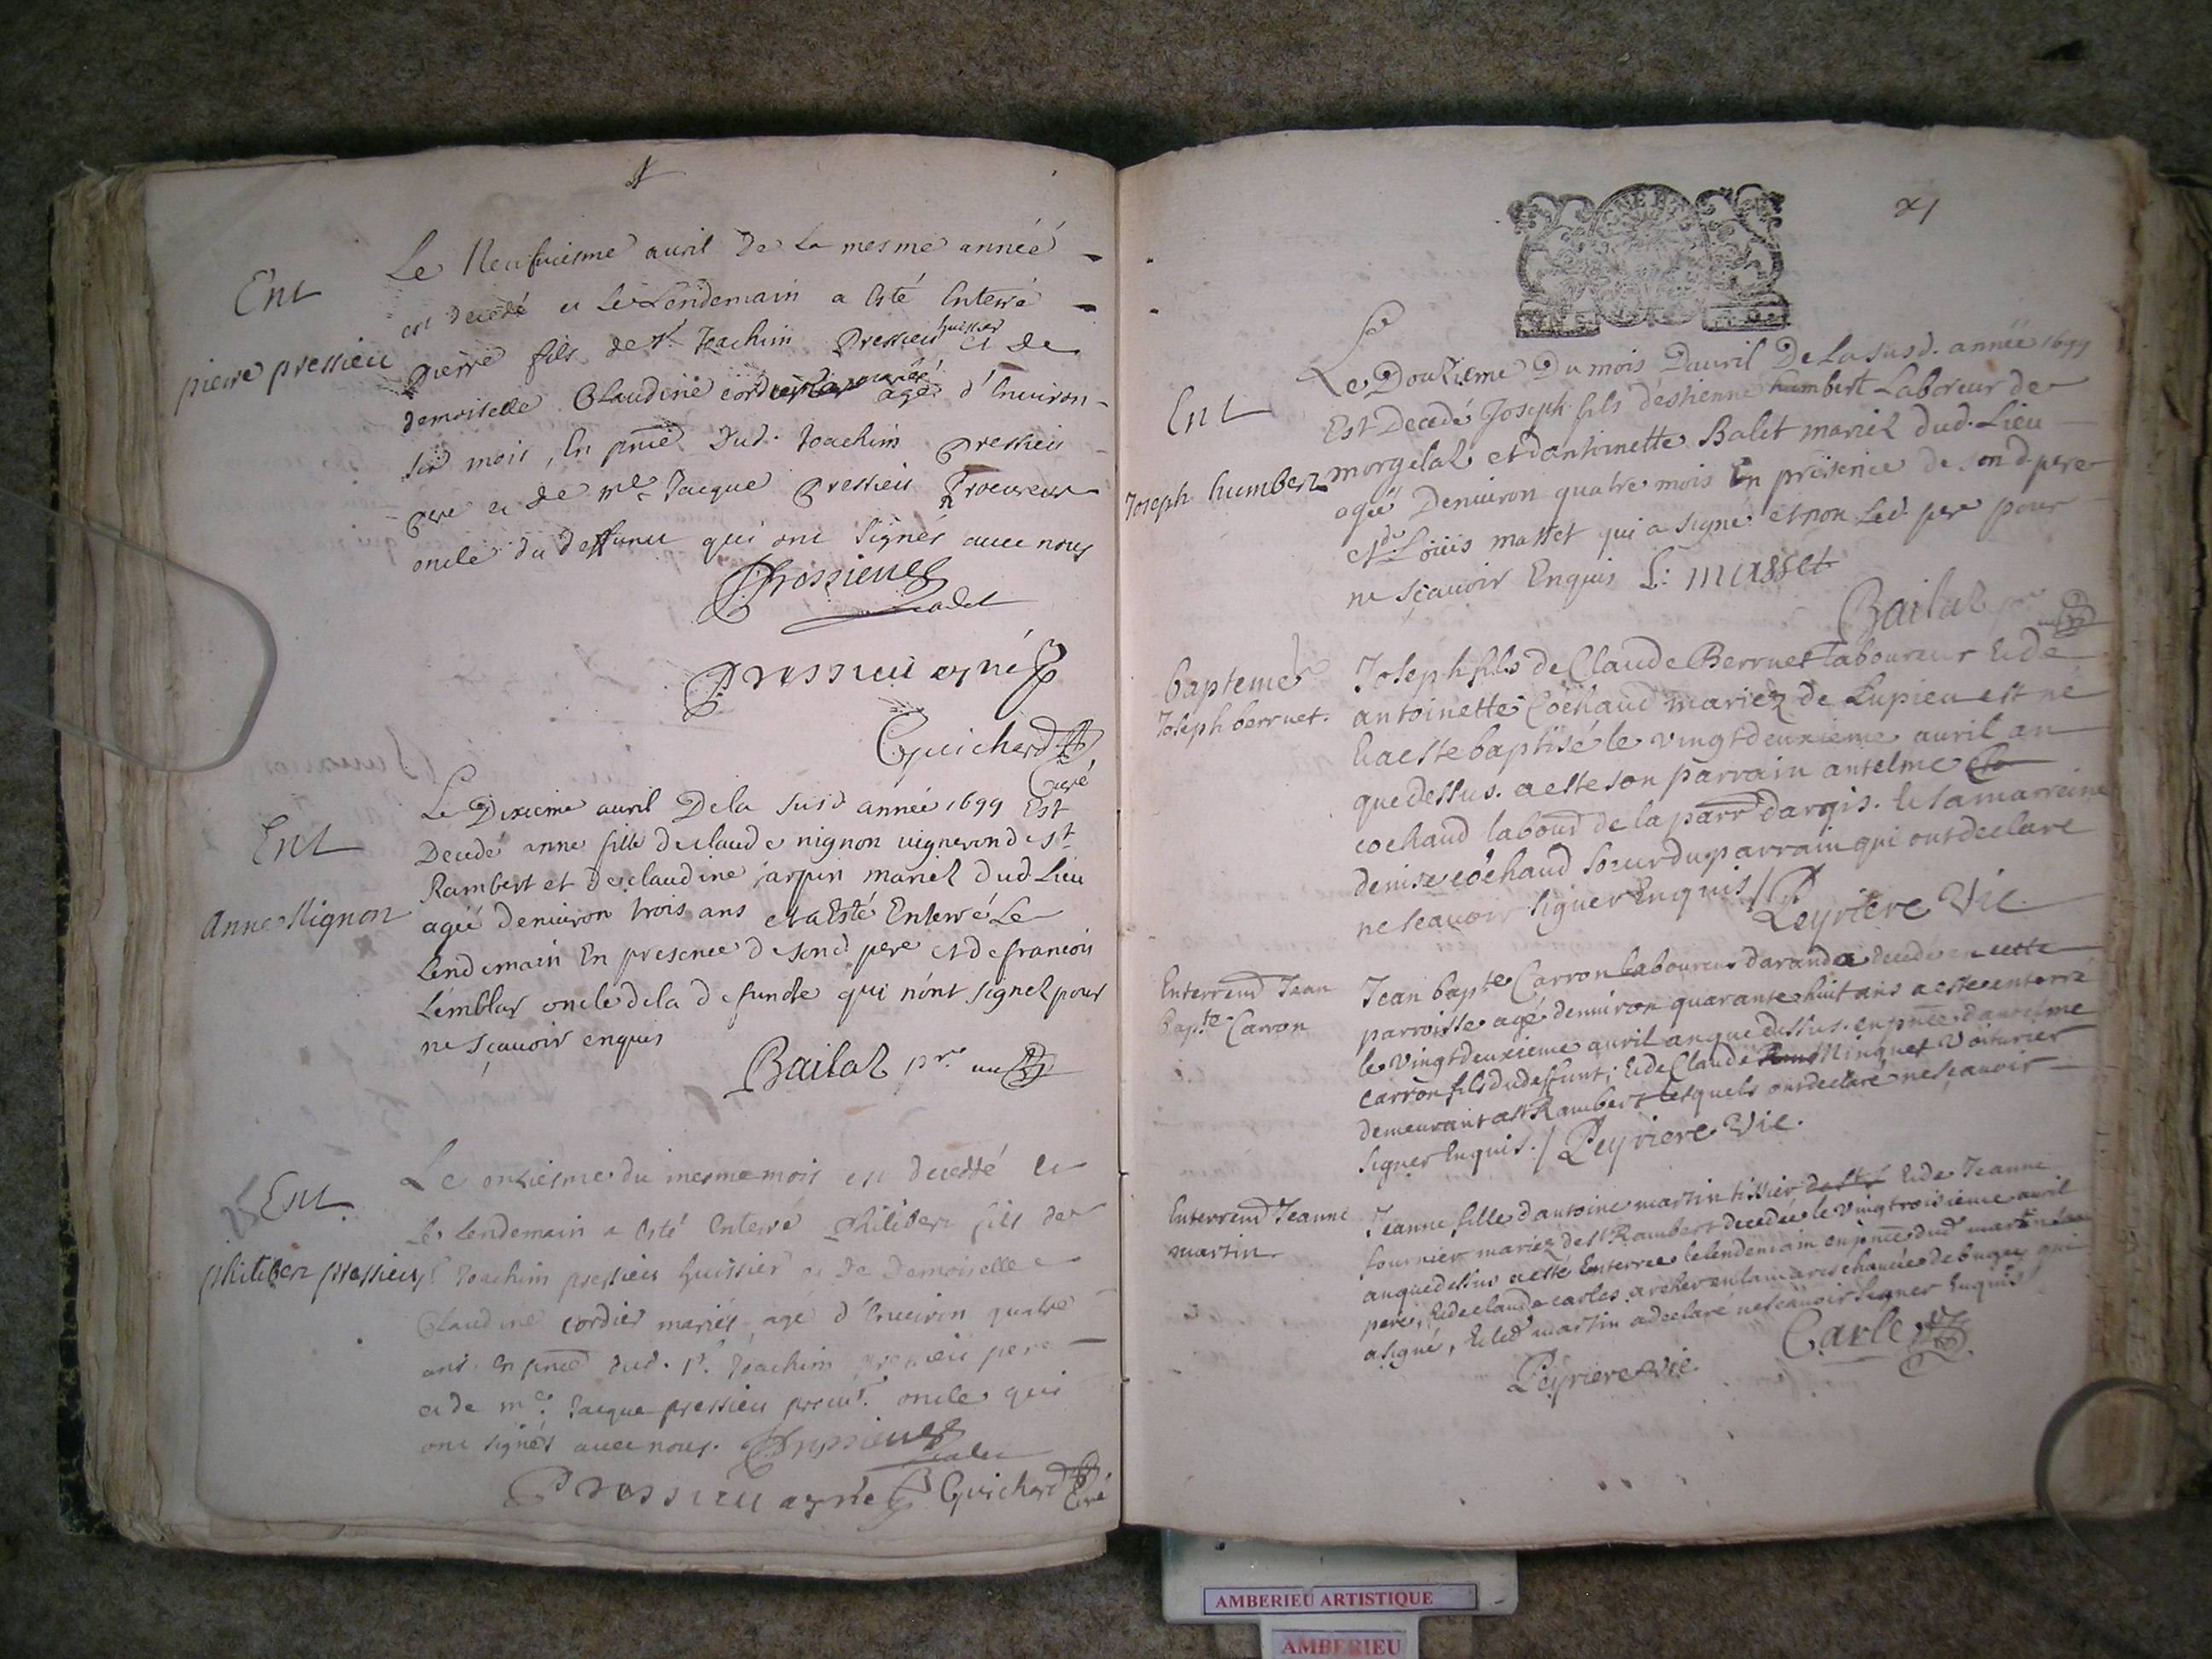 Ent
pierre pressieu
Le Neufuiesme auril de la mesme année
est decedé et le Lendemain a esté Enterré
pierre fils de Sr. Joachim Pressieu huissier et de
demoiselle Claudine cordier mariés agé d'Enuiron
six mois, En pnce dud. Joachim pressieu
pere et de me. Jacque pressieu Procureur
oncle du deffunct qui ont signés auec nous
Pressieu
Cadet
Pressieu aynéß
Guichard
Curé
Ent
Anne Nignon
Le Dixieme auril De la susd année 1699 Est
Decedé anne fille de claude nignon uigneron de st
Rambert et de claudine jarpin mariez dud Lieu
agée denuiron trois ans et a Esté Enterré Le
Lendemain En presence de sond pere et de francois
Lemblas oncle de la defuncte qui nónt signez pour
ne sçauoir enquis
Bailaz pre
Ent
philibert pressieu
Le onziesme du mesme mois est decedé et
le Lendemain a esté Enterré Philibert fils de
Sr Joachim pressieu huissier et De Demoiselle
Claudine cordier mariés, agé d'Enuiron quatre
ans. En pnce dud. sr. Joachim pressieu pere
et de me. Jacque pressieu procur. oncle qui
ont signés auec nous. Pressieu
Cadet
Pressieu ayné Guichard
Curé
x1
Ent
Joseph humbert
Le Douzieme Du mois Dauril De La susd. année 1699
Est Decedé Joseph fils déstienne humbert Laboreur de
morgelaz et dantoinette Balet mariez dud. Lieu
agé Denuiron quatre mois En présence de sond. pere
et de Loüis masset qui a signé et non Led. pere pour
ne sçauoir Enquis L: masset
Bailaz pre
bapteme
Joseph berruet.
Joseph fils de Claude Berruet laboureur & de
antoinette Cochaud mariez de Lupieu est né
& a esté baptisé le vingt deuxieme auril an
que dessus. a esté son parrain anselme
cochaud labour de la parr dargis. & sa marreine
denise cochaud soeur du parrain qui ont declaré
ne sçauoir signer Enquis / Peyriere Vic.
Enterremt Jean
Bapte Carron
Jean bapte Carron laboureur daranda decedé en cette
parroisse agé denuiron quarante huit ans a esté enterré
le vingt deuxieme auril an que dessus. en pnce danselme
carron fils du deffunt; & de Claude Ninquet Voiturier
demeurant a st Rambert lesquels ont declaré ne sçauoir
signer Enquis. / Peyriere Vic.
Enterremt Jeanne
martin
Jeanne fille dantoine martin tissier & de Jeanne
fournier mariez de st Rambert decedée le vingt troisieme auril
an que dessus a esté Enterrée le lendemain en pnce dud martin
pere, & de claude carles archer en la mareschaucée de bugey qui
a signé, & led martin a declaré ne sçauoir signer Enquis /
Carle
Peyriere Vic.
AMBERIEU ARTISTIQUE
AMBERIEU